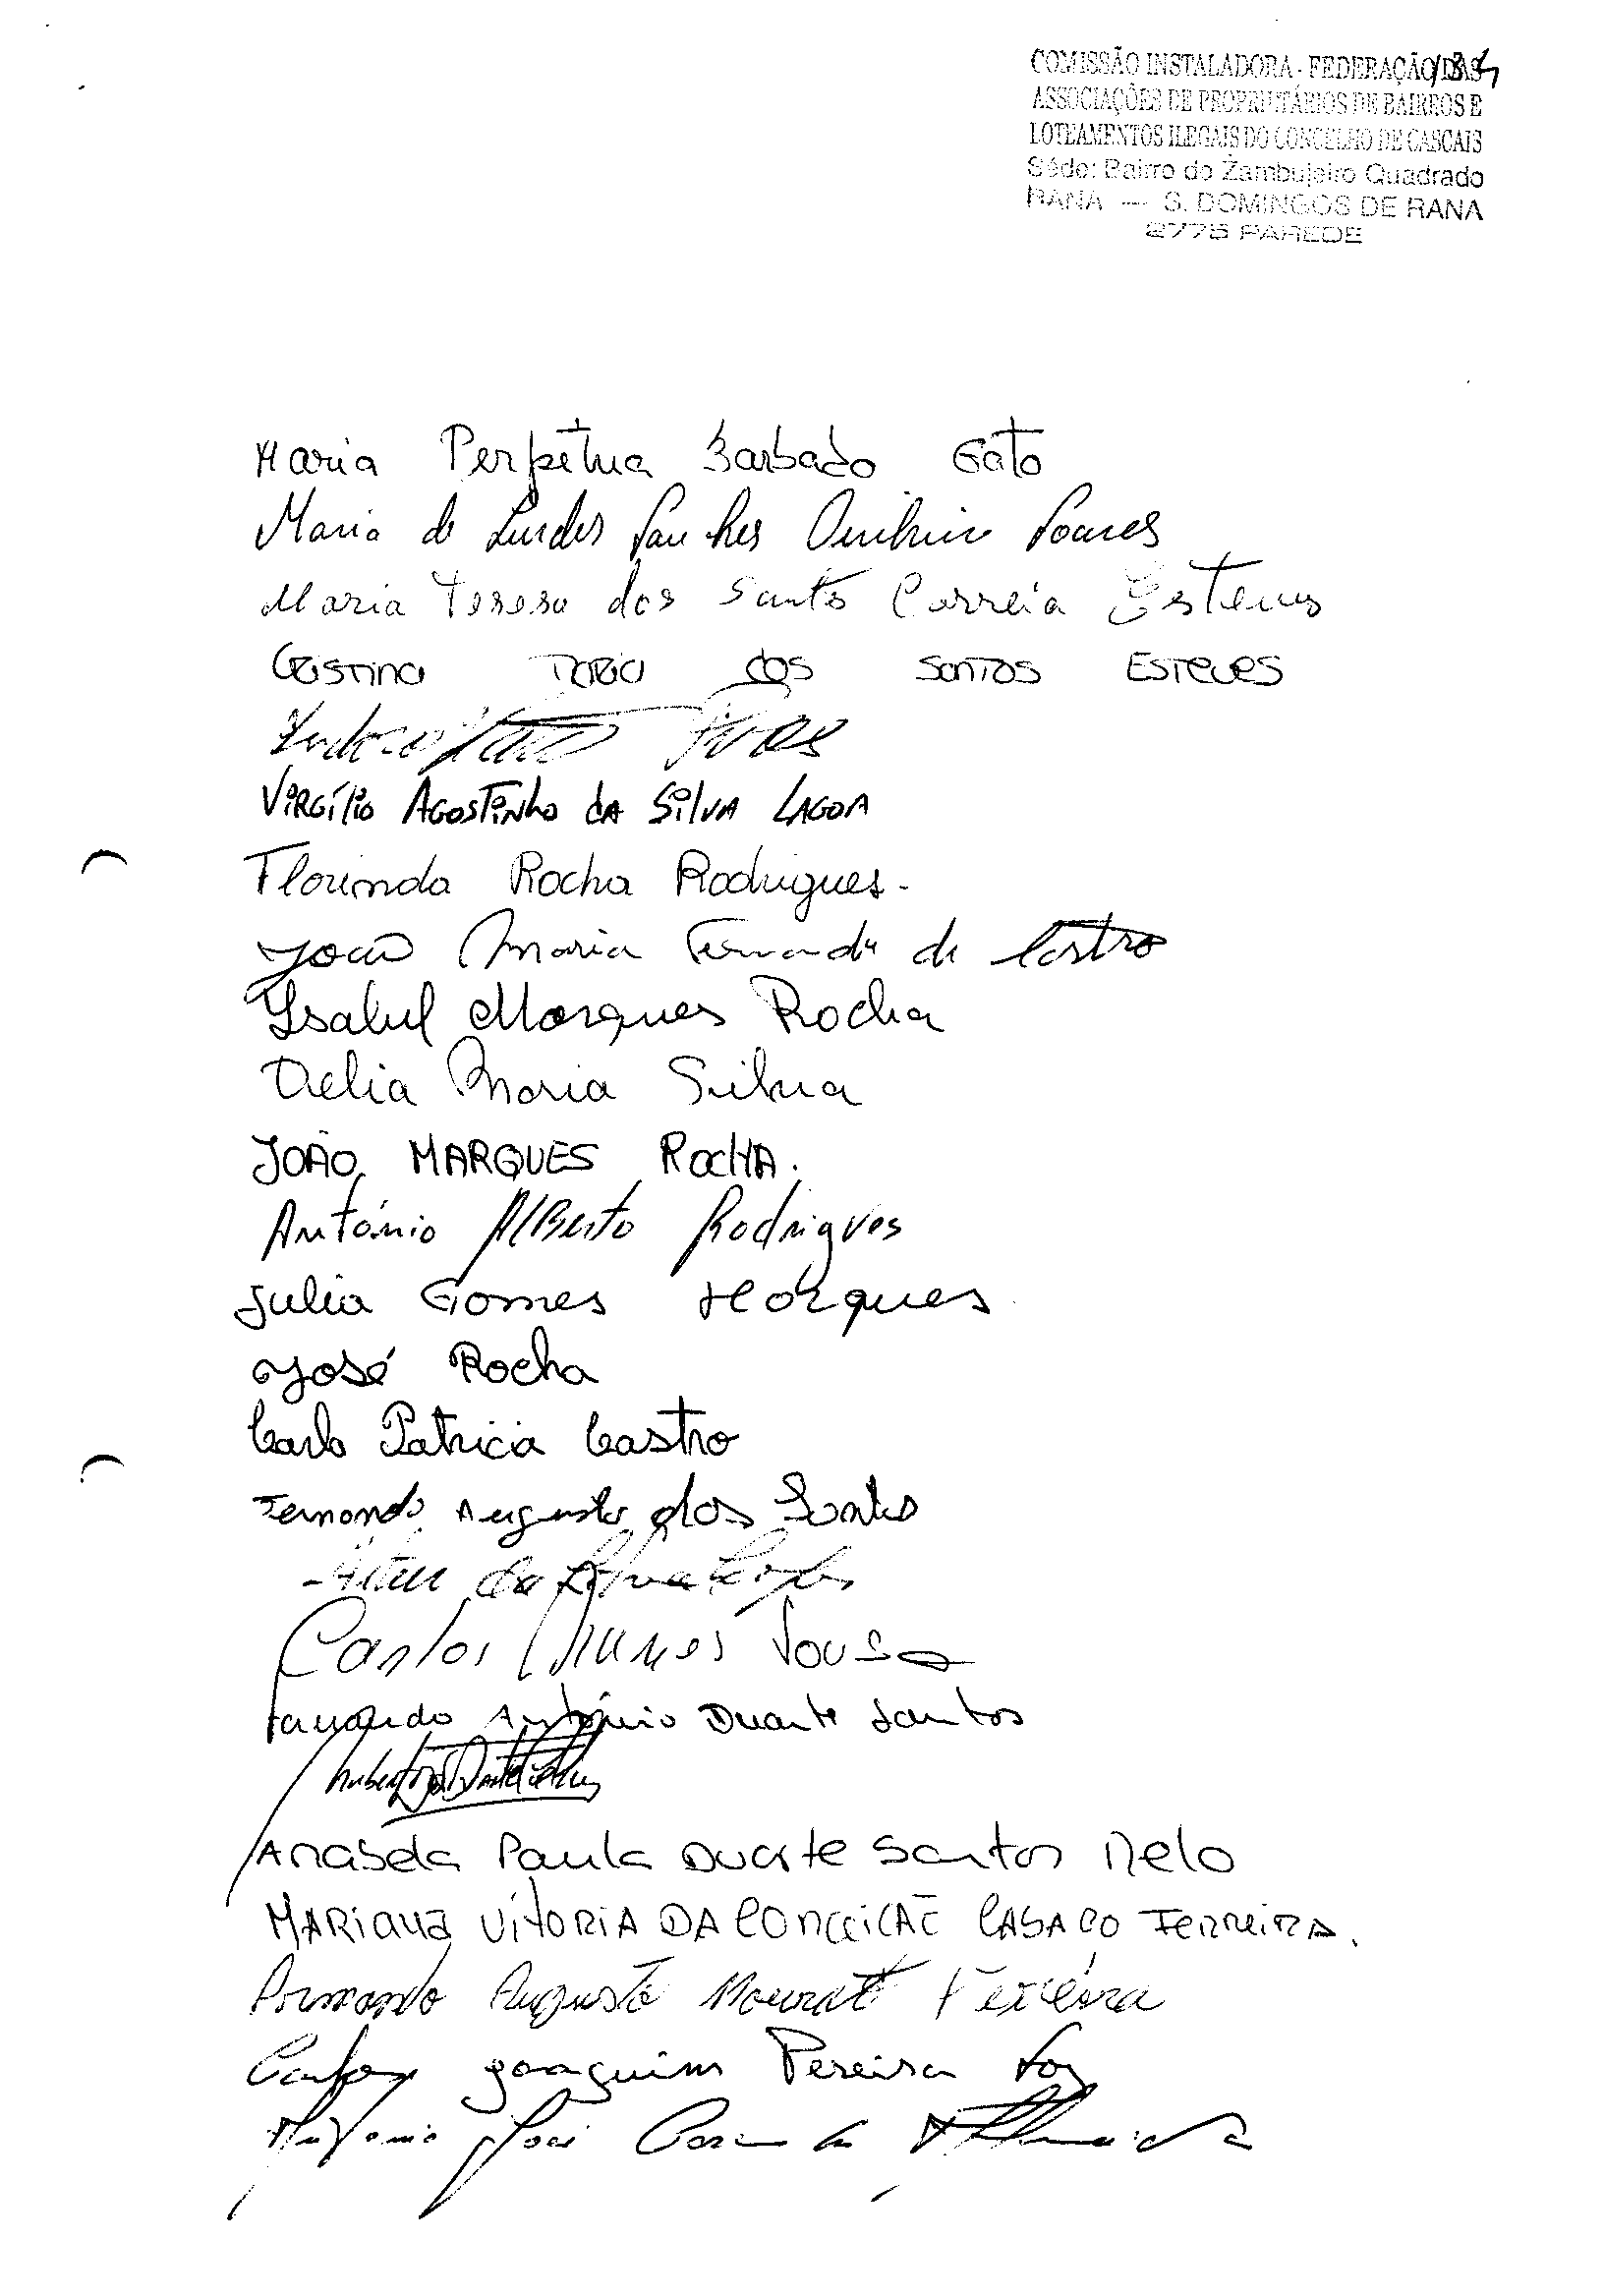 COMISSÃO INSTALADORA - FEDERAÇÃO DAS
ASSOCIAÇÕES DE PROPRIETÁRIOS DE BAIRROS E
LOTEAMENTOS ILEGAIS DO CONCELHO DE CASCAIS
Séde: Bairro do Zambujeiro Quadrado
RANA — S. DOMINGOS DE RANA
2775 PAREDE
Maria Perpétua Barbado Gato
Maria de Lurdes Sanches Soares
Maria Teresa dos Santos Correia Esteves
Cristina Maria dos Santos Esteves
VIRGÍLIO AGOSTINHO DA SILVA LAGOA
Florinda Rocha Rodrigues.
João Maria Fernandes de Castro
Isabel Marques Rocha
Delia Maria Silva
JOÃO MARQUES ROCHA.
António Alberto Rodrigues
Julia Gomes Marques
José Rocha
Carla Patricia Castro
Fernando Augusto dos Santos
da Silva
Carlos Nunes Sousa
Fernando António Duarte Santos
Anabela Paula Duarte Santos Melo
MARIANA VITORIA DA CONCEICÃO CASACO FERREIRA.
Armando Augusto Mourato Ferreira
Carlos Joaquim Pereira
Antonio José Almeida